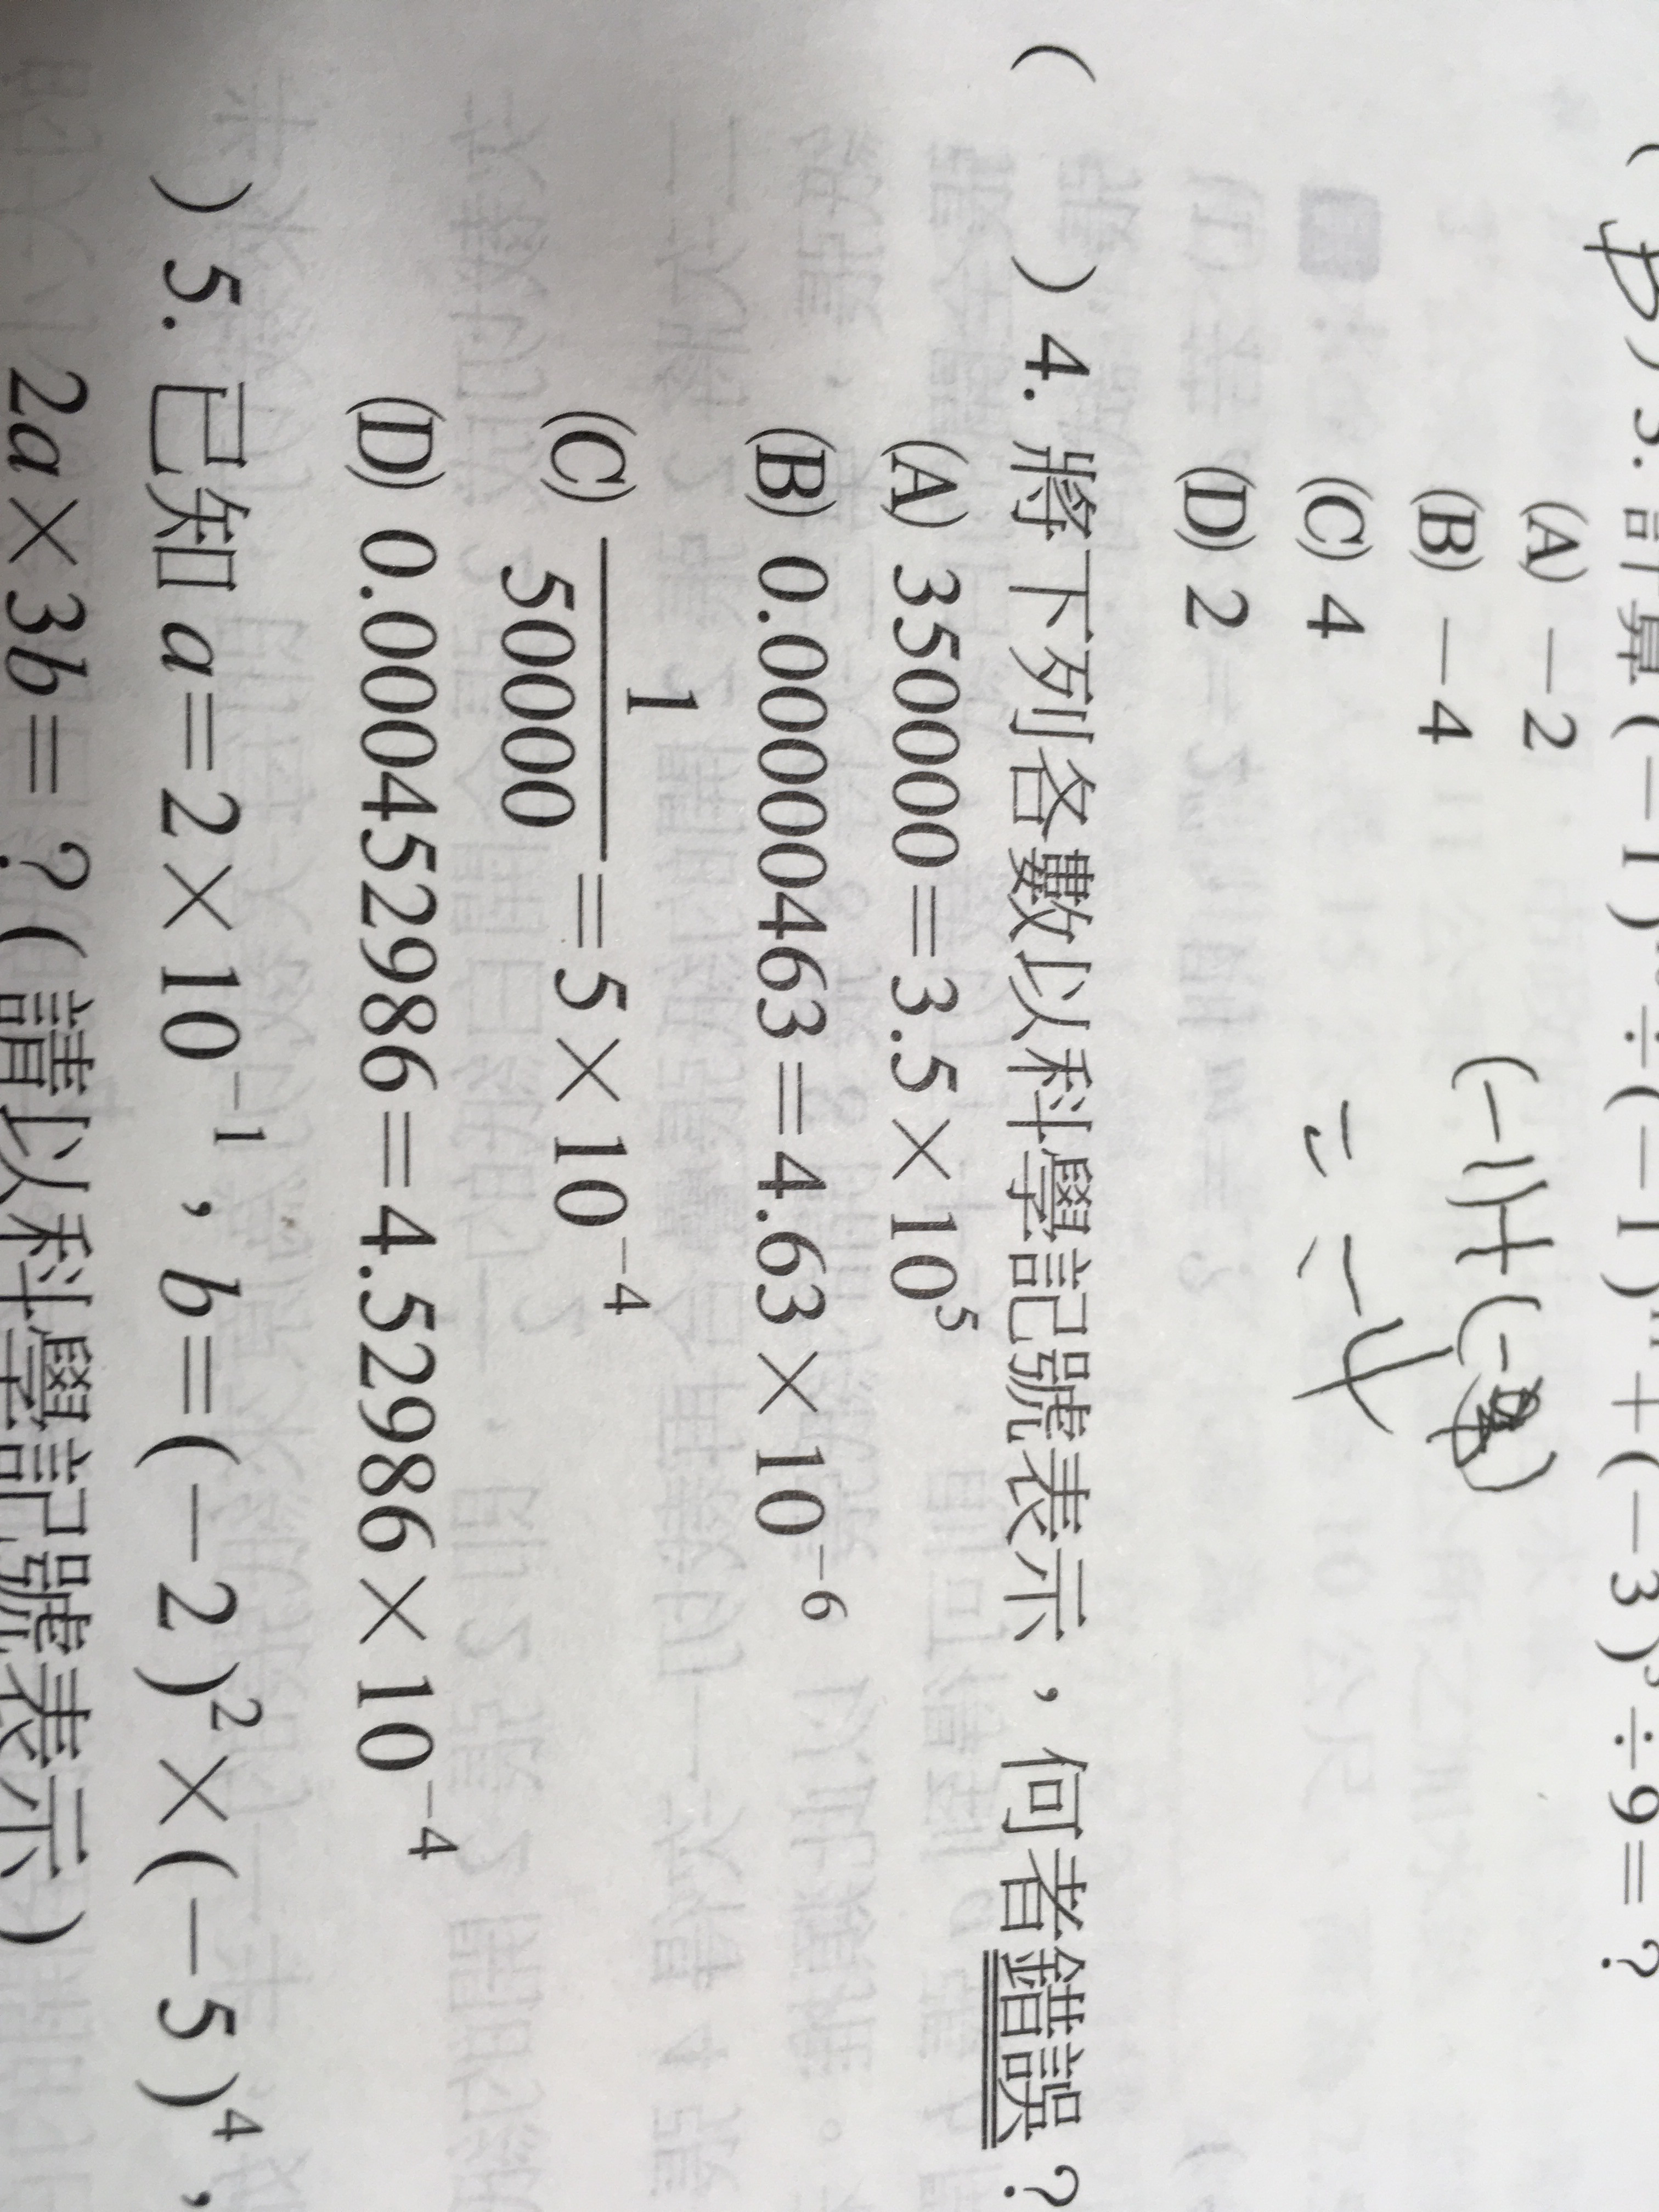 3. 計算(-1) ÷(-1) +(-3) ÷9=?
(A) -2
(B) -4
(C) 4
(D) 2
(-1)+(-
= -4
( ) 4. 將下列各數以科學記號表示,何者錯誤?
(A) 350000=3.5×10⁵
(B) 0.00000463=4.63×10⁻⁶
(C) 1/50000=5×10⁻⁴
(D) 0.000452986=4.52986×10⁻⁴
) 5. 已知 a=2×10⁻¹,b=(-2)²×(-5)⁴,
2a×3b=?(請以科學記號表示)